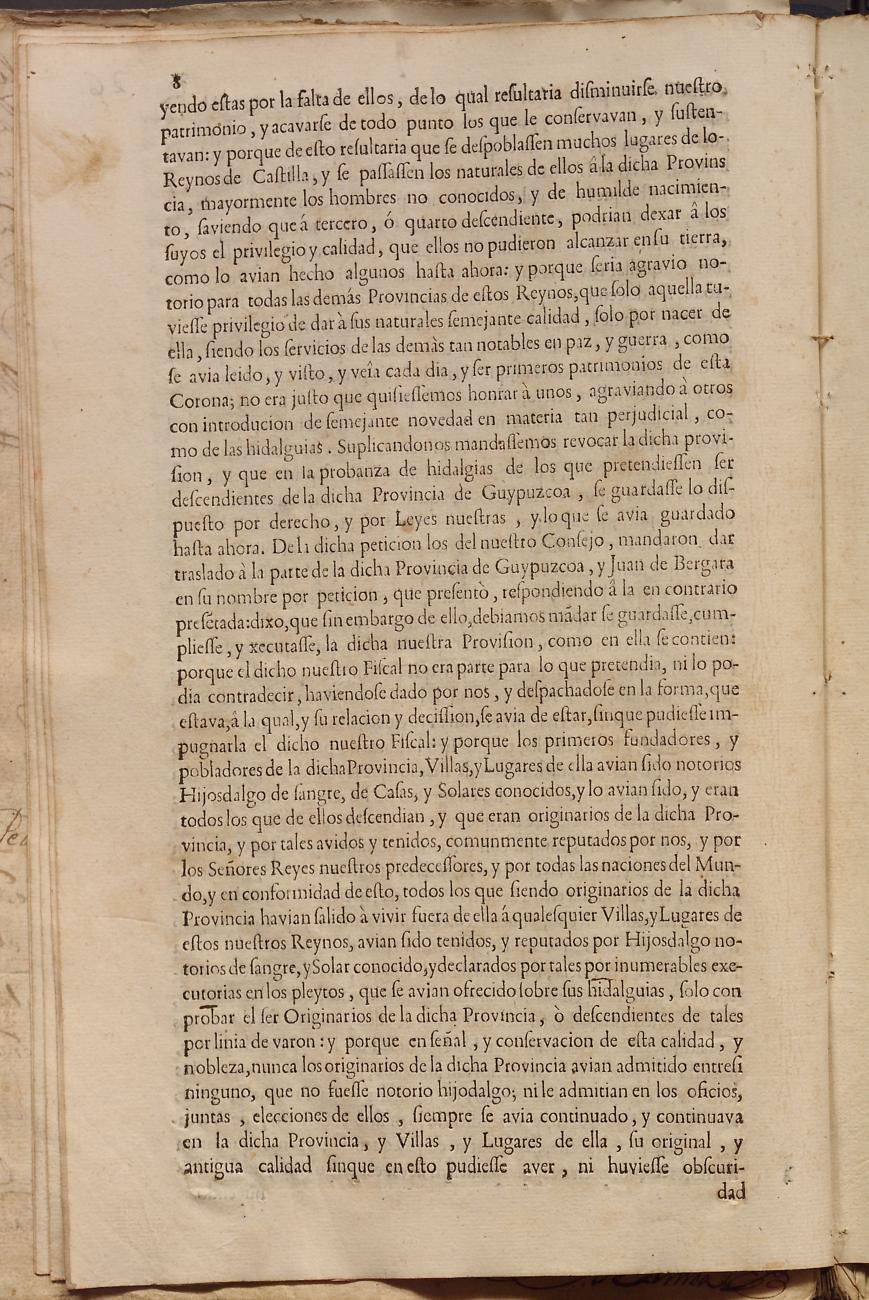 8
yendo eſtas por la falta de ellos, de lo qual reſultaria diſminuirſe nueſtro
patrimonio, y acavarſe de todo punto los que le conſervavan, y ſuſten-
tavan: y porque de eſto reſultaria que ſe deſpoblaſſen muchos lugares de lo-
Reynos de Caſtilla, y ſe paſſaſſen los naturales de ellos â la dicha Provins
cia, mayormente los hombres no conocidos, y de humilde nacimien-
to, ſaviendo que á tercero, ó quarto deſcendiente, podrian dexar â los
ſuyos el privilegio y calidad, que ellos no pudieron alcanzar en ſu tierra,
como lo avian hecho algunos haſta ahora: y porque ſeria agravio no-
torio para todas las demás Provincias de eſtos Reynos, que ſolo aquella tu-
vieſſe privilegio de dar à ſus naturales ſemejante calidad, ſolo por nacer de
ella, ſiendo los ſervicios de las demàs tan notables en paz, y guerra, como
ſe avia leido, y viſto, y veîa cada dia, y ſer primeros patrimonios de eſta
Corona; no era juſto que quiſieſſemos honrar à unos, agraviando à otros
con introducion de ſemejante novedad en materia tan perjudicial, co-
mo de las hidalguias. Suplicandonos mandaſſemos revocar la dicha provi-
ſion, y que en la probanza de hidalgias de los que pretendieſſen ſer
deſcendientes de la dicha Provincia de Guypuzcoa, ſe guardaſſe lo diſ-
pueſto por derecho, y por Leyes nueſtras, y lo que ſe avia guardado
haſta ahora. De la dicha peticion los del nueſtro Conſejo, mandaron dar
traslado à la parte de la dicha Provincia de Guypuzcoa, y Juan de Bergara
en ſu nombre por peticion, que preſentò, reſpondiendo â la en contrario
preſẽtada: dixo, que ſin embargo de ello, debiamos mãdar ſe guardaſſe, cum-
plieſſe, y xecutaſſe, la dicha nueſtra Proviſion, como en ella ſe contien:
porque el dicho nueſtro Fiſcal no era parte para lo que pretendia, ni lo po-
dia contradecir, haviendoſe dado por nos, y deſpachadoſe en la forma, que
eſtava, â la qual, y ſu relacion y deciſſion, ſe avia de eſtar, ſinque pudieſſe im-
pugnarla el dicho nueſtro Fiſcal: y porque los primeros fundadores, y
pobladores de la dicha Provincia, Villas, y Lugares de ella avian ſido notorios
Hijosdalgo de ſangre, de Caſas, y Solares conocidos, y lo avian ſido, y eran
todos los que de ellos deſcendian, y que eran originarios de la dicha Pro-
vincia, y por tales avidos y tenidos, comunmente reputados por nos, y por
los Señores Reyes nueſtros predeceſſores, y por todas las naciones del Mun-
do, y en conformidad de eſto, todos los que ſiendo originarios de la dicha
Provincia havian ſalido à vivir fuera de ella á qualeſquier Villas, y Lugares de
eſtos nueſtros Reynos, avian ſido tenidos, y reputados por Hijosdalgo no-
torios de ſangre, y Solar conocido, y declarados por tales por inumerables exe-
cutorias en los pleytos, que ſe avian ofrecido ſobre ſus hidalguias, ſolo con
probar el ſer Originarios de la dicha Provincia, ò deſcendientes de tales
por linia de varon: y porque en ſeñal, y conſervacion de eſta calidad, y
nobleza, nunca los originarios de la dicha Provincia avian admitido entreſi
ninguno, que no fueſſe notorio hijodalgo; ni le admitian en los oficios,
juntas, elecciones de ellos, ſiempre ſe avia continuado, y continuava
en la dicha Provincia, y Villas, y Lugares de ella, ſu original, y
antigua calidad ſinque en eſto pudieſſe aver, ni huvieſſe obſcuri-
dad